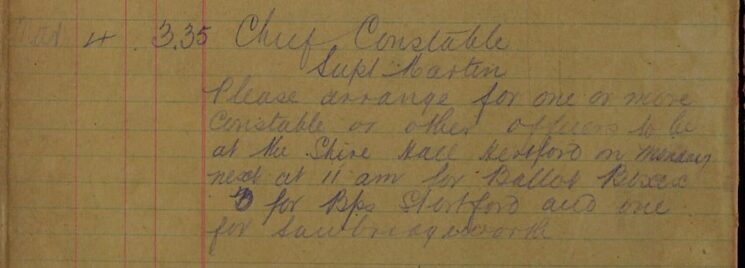 Sat 4 3.35 Chief Constable
Supt Martin
Please arrange for one or more
Constable or other officers to be
at the Shire Hall Hertford on monday
next at 11 am for Ballot Boxes
for Bps Stortford and one
for Sawbridgeworth